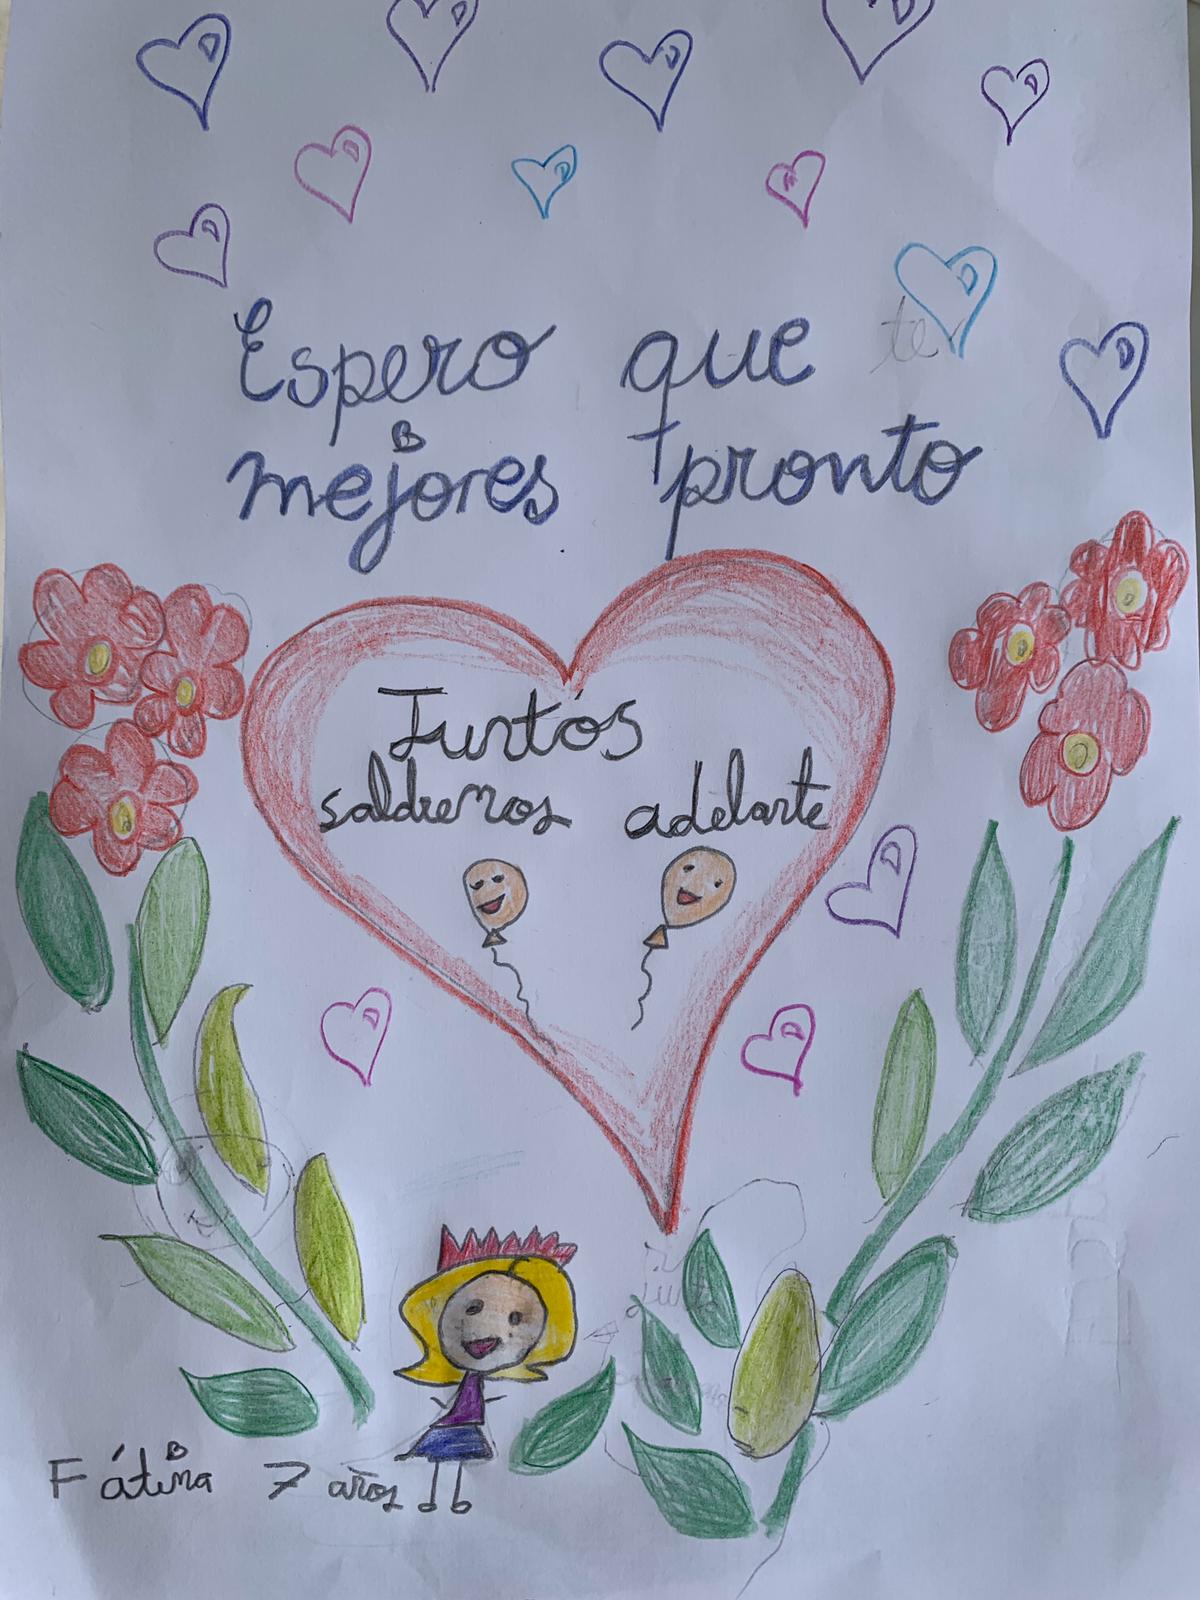 Espero que te
mejores pronto
Juntos
saldremos adelante
Fátima 7 años